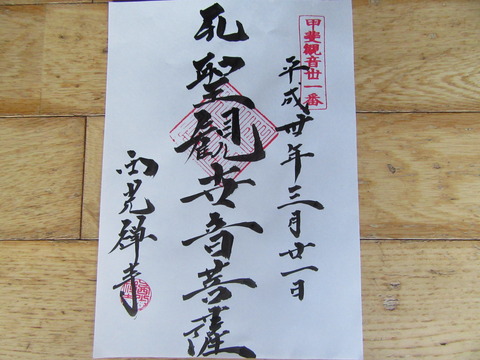 甲斐観音廿一番
平成廿年三月廿一日
聖觀世音菩薩
西光禪寺